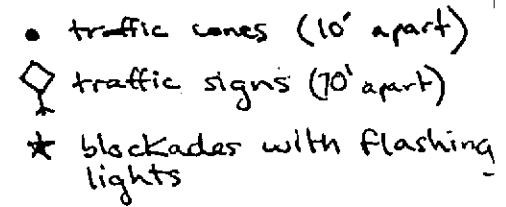 • traffic cones (10' apart)
traffic signs (70' apart)
★ blockades with flashing
lights